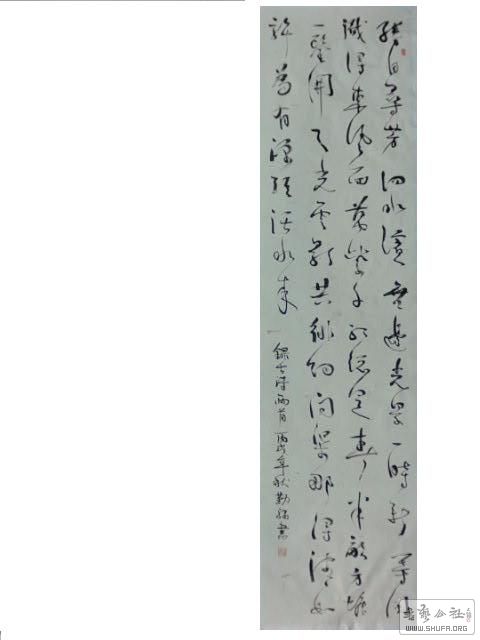 勝日尋芳泗水濱無邊光景一時新等閑
識得東風面萬紫千紅總是春半畝方塘
一鑒開天光雲影共徘徊問渠那得清如
許為有源頭活水來
錄古詩兩首丙戌年秋勤書
書藝公社
WWW.SHUFA.ORG